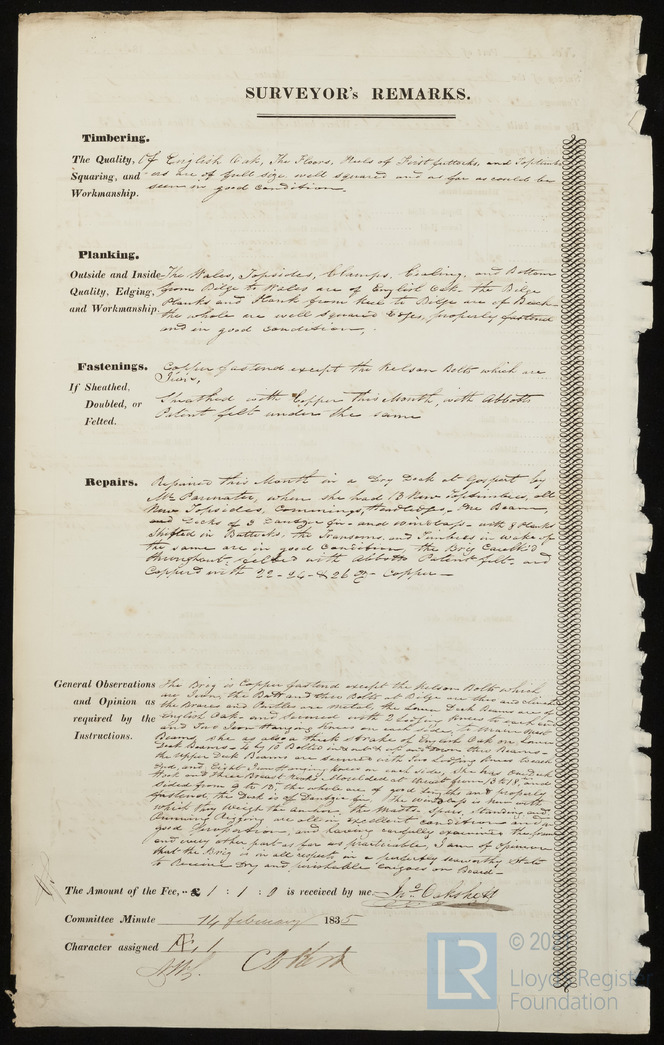 SURVEYOR's REMARKS.
Timbering.
The Quality, Of English Oak, The Floors, Heels of First futtocks, and Toptimb
Squaring, and -ers are of full size well squared and as far as could be
Workmanship. seen in good condition.
Planking.
Outside and Inside The Wales, Topsides, Clamps, Cealing, and Bottom
Quality, Edging, from Bilge to Wales are of English Oak, the Bilge
and Workmanship. Planks and Plank from keel to Bilge are of Beech
the whole are well squared Edges, properly fastend
and in good condition,
Fastenings. Copper fastend except the Kelson Bolts which are
If Sheathed, Iron,
Doubled, or Sheathed with Copper this Month, with Abbotts
Felted. Patent felt under the same
Repairs. Repaired this Month in a Dry Dock at Gosport by
Mr. when she had 13 New Toptimbers, all
New Topsides, Commings, Headledges, One Beam,
and Decks of 3 Dantzic fir - and - with 8 Planks
Shifted in Buttocks, the Transoms, and Timbers in wake of
the same are in good Condition, the Brig Caulk'd
throughout, felted with Abbotts Patent felt, and
Copperd with 22 - 24 - & 26 oz - Copper -
General Observations The Brig is Copper fastend except the Kelson Bolts which
and Opinion as are Iron, the Butt and Bolts at Bilge are thro and clinch
required by the the Braces and Pintles are metal, the Lower Deck Beams are of
Instructions. English Oak - and Secured with 2 Lodging Knees to each end
and Two Iron Hanging Knees on each side, to Main Mast
Beams, she has also a thick Strake of English Oak on Lower
Deck Beams - 4 by 10 Bolted and down thro Beams -
the Upper Deck Beams are secured with Two Lodging Knees to each
End, and Eight Iron Hanging Knees on each side, She has One Deck
Hook and Three Breast Hooks. Moulded at from 13 to 8, and
Sided from 9 to 12, the whole are of good lengths and properly
fastend, the Deck is of Dantzic fir, The Windlass is New with
which they Weigh the anchor, the Masts, Spars, Standing and
Running Rigging are all in Excellent condition and in
good Proportion, and having carefully examined the frame
and every other part as far as practicable, I am of Opinion
that the Brig is in all respects in a perfectly seaworthy State
to Receive Dry and perishable Cargoes on Board -
The Amount of the Fee, £ 1 : 1 : 0 is received by me, Jno. Oakshott
Committee Minute 14 february 1835
Character assigned Æ 1
© 20
Lloyd's Register
Foundation
LR